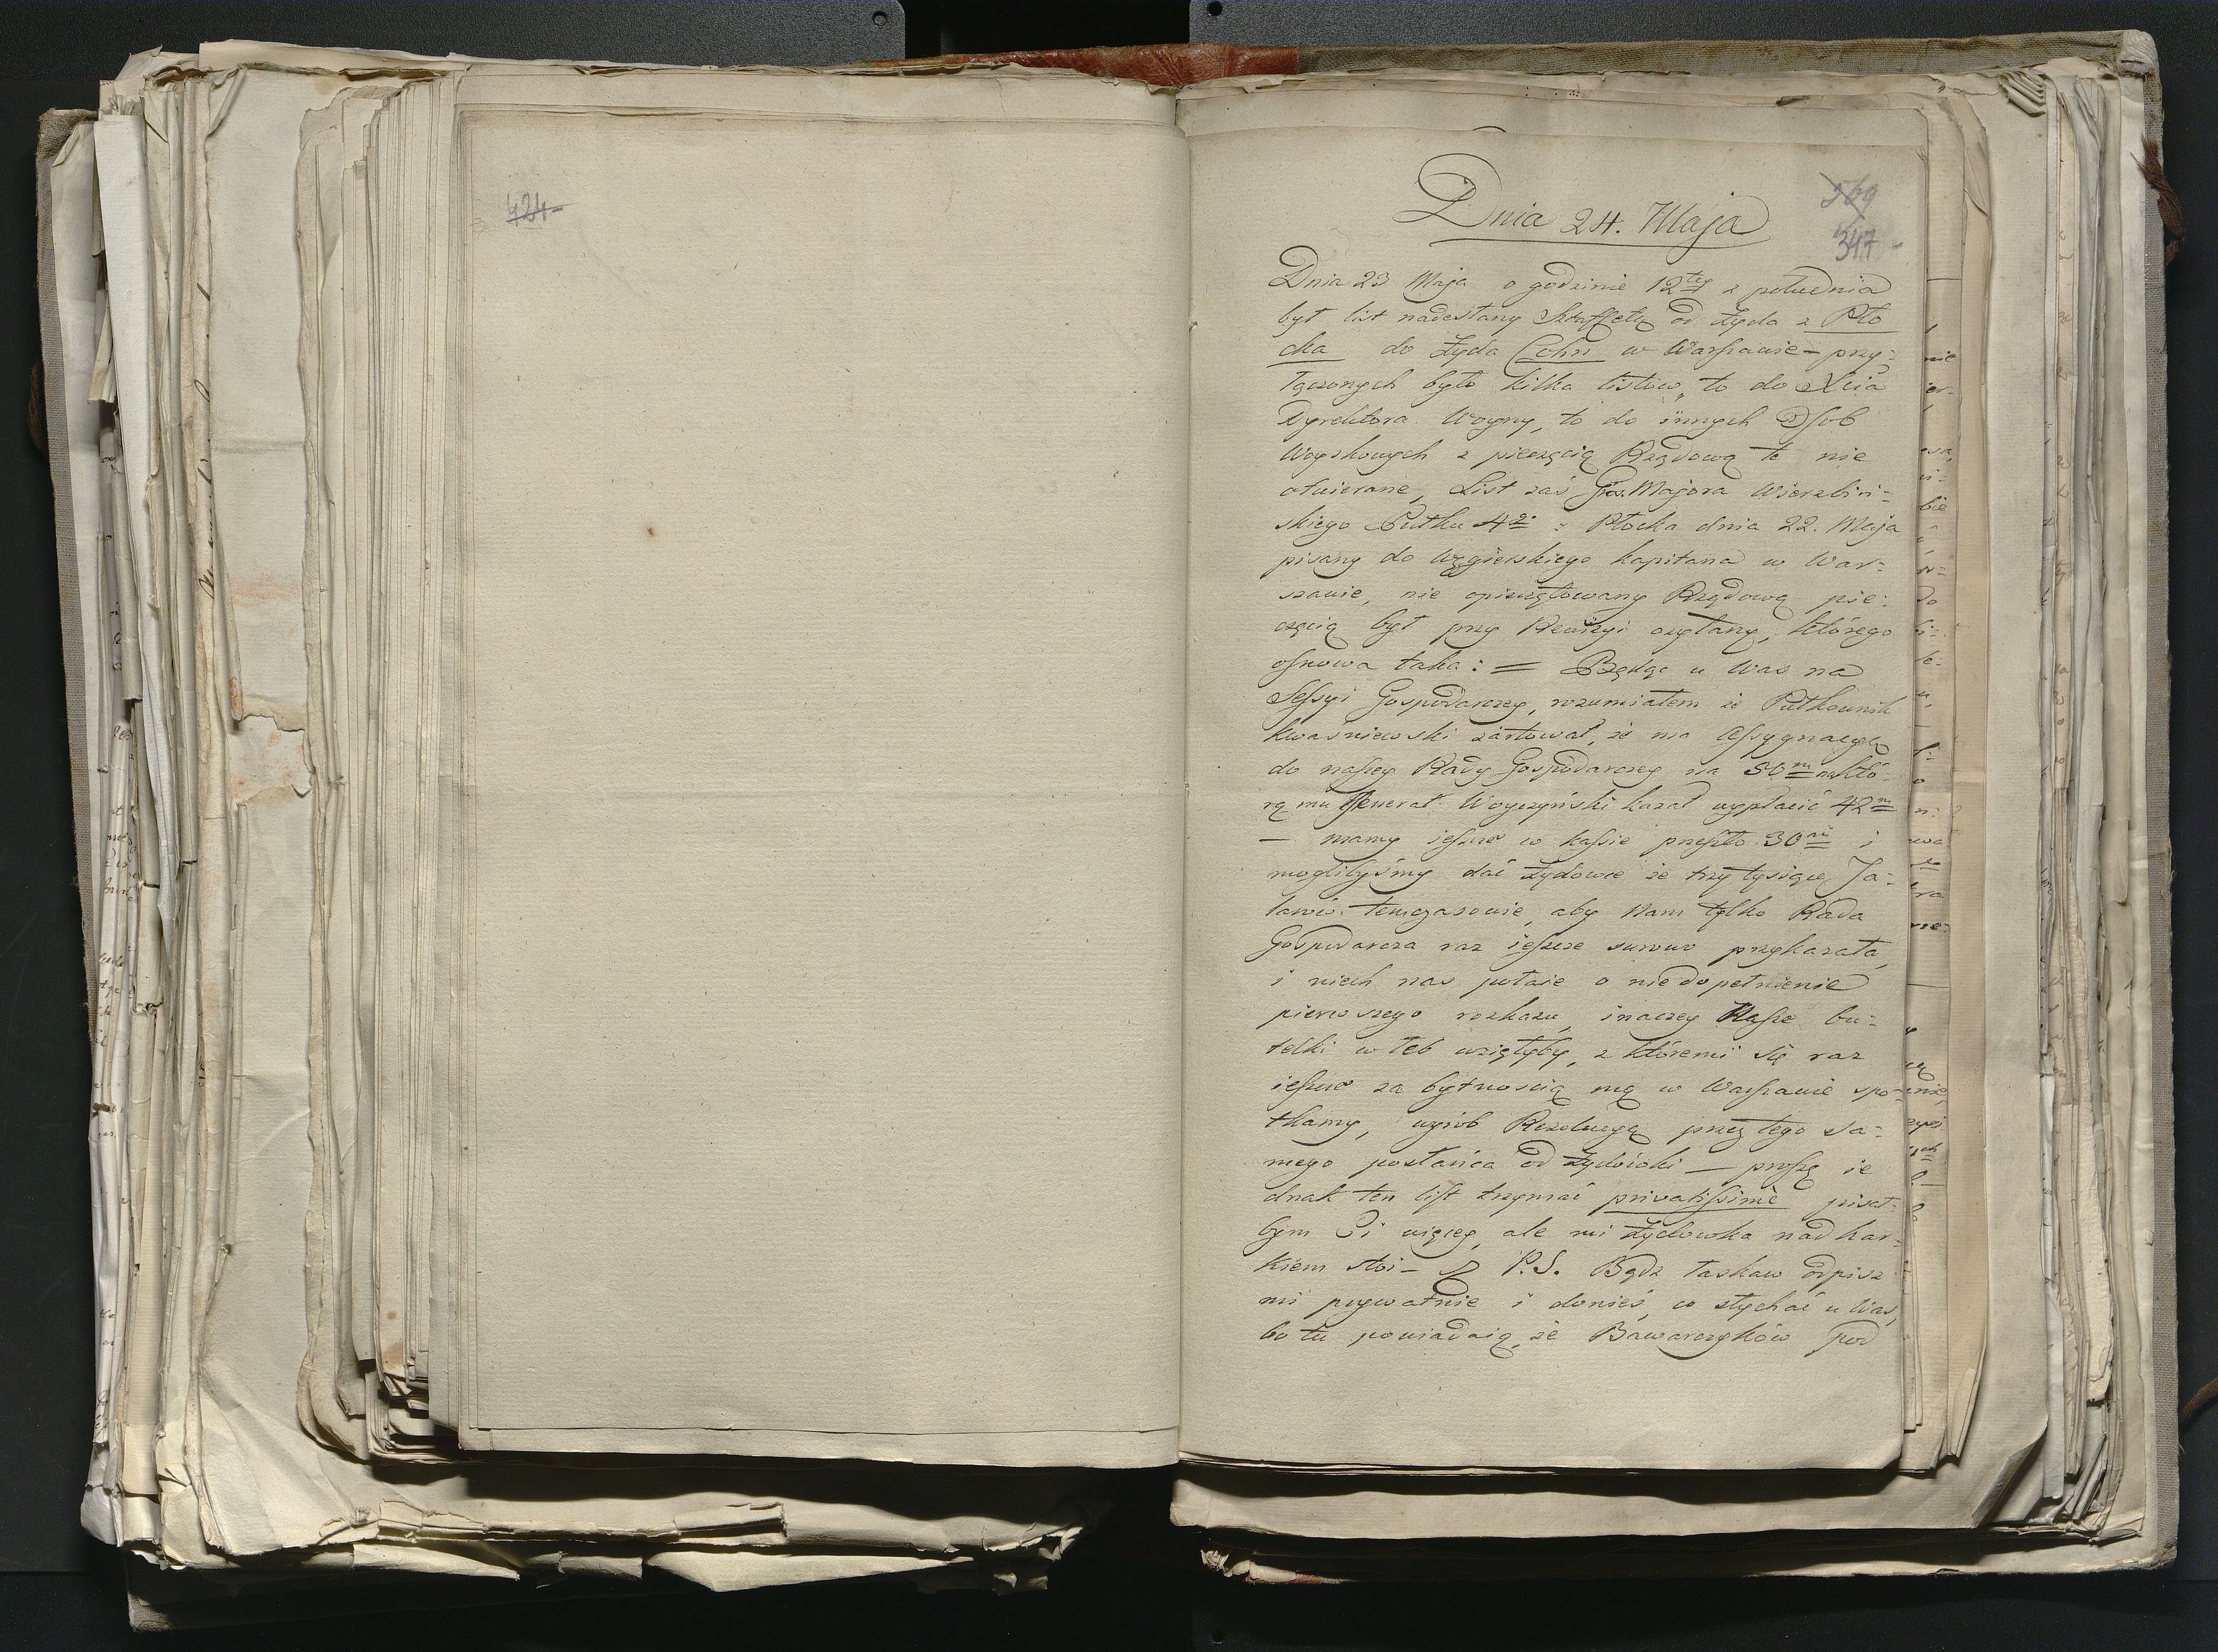 424
569
347
Dnia 24. Maja
Dnia 23 Maja o godzinie 12tey z południa
był list nadesłany Sztaffetą od żyda z Pło
cka do żyda Cohn w Warszawie – przy:
łączonych było kilka listów, to do Xcia
Dyrektora Woyny, to do innych Osob
Woyskowych z pieczęcią Rządową te nie
otwierane, List zaś Majora Wierzbiń:
skiego Pułku 4go z Płocka dnia 22. Maja
pisany do Węgierskiego kapitana w War:
szawie, nie opieczętowany Rządową pie:
częcią był przy Rewizyi czytany, którego
osnowa taka: = Będąc u Was na
Sessyi Gospodarczey, rozumiałem że Pułkownik
Kwaśniewski żartował, że ma Assygnacyą
do naszey Rady Gospodarczey na 50m na któ:
rą mu Generał Woyczyński kazał wypłacić 42m
– mamy ieszcze w kassie przeszło 30m i
moglibyśmy dać żydówce ze trzy tysiące Ja:
tanio temczasowie, aby Nam tylko Rada
Gospodarcza raz ieszcze surowo przykazała,
i niech nas połaie o niedopełnienie
pierwszego rozkazu, inaczey Nasze bu:
telki w łeb wzięłyby, z któremi się raz
ieszcze za bytnością mą w Warszawie spo:
tkamy, wyrób Rezolucyą przez tego sa:
mego posłańca od żydówki – proszę ie
dnak ten list trzymać privatissime pisał:
bym Ci więcey, ale mi żydówka nad kar:
kiem stoi – P.S. Bądź łaskaw odpisz
mi prywatnie i donieś, co słychać u Was,
bo tu powiadaią, że Bawarczyków pod